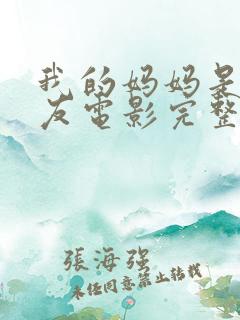 我的妈妈是
友电影完整
張海强
未经同意禁止转载